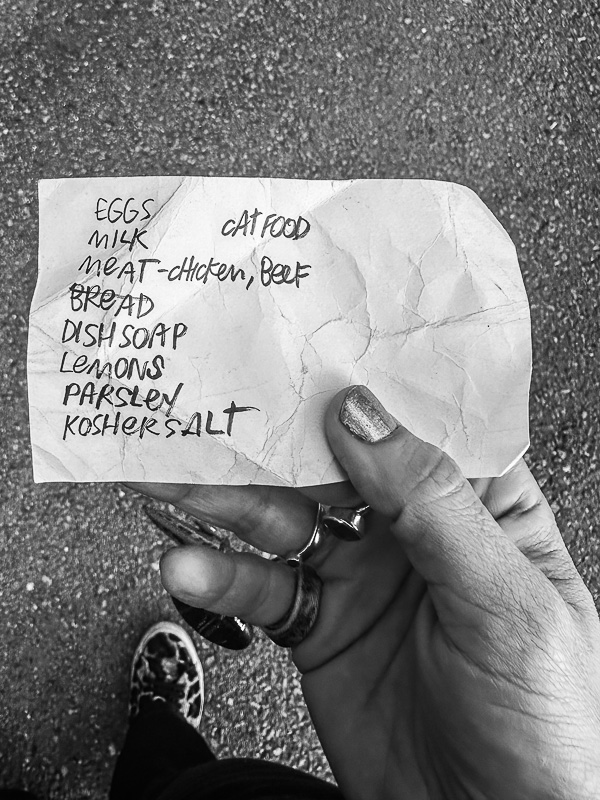 EGGS
MILK
CAT FOOD
MEAT-CHICKEN, BEEF
BREAD
DISH SOAP
LEMONS
PARSLEY
KOSHER SALT